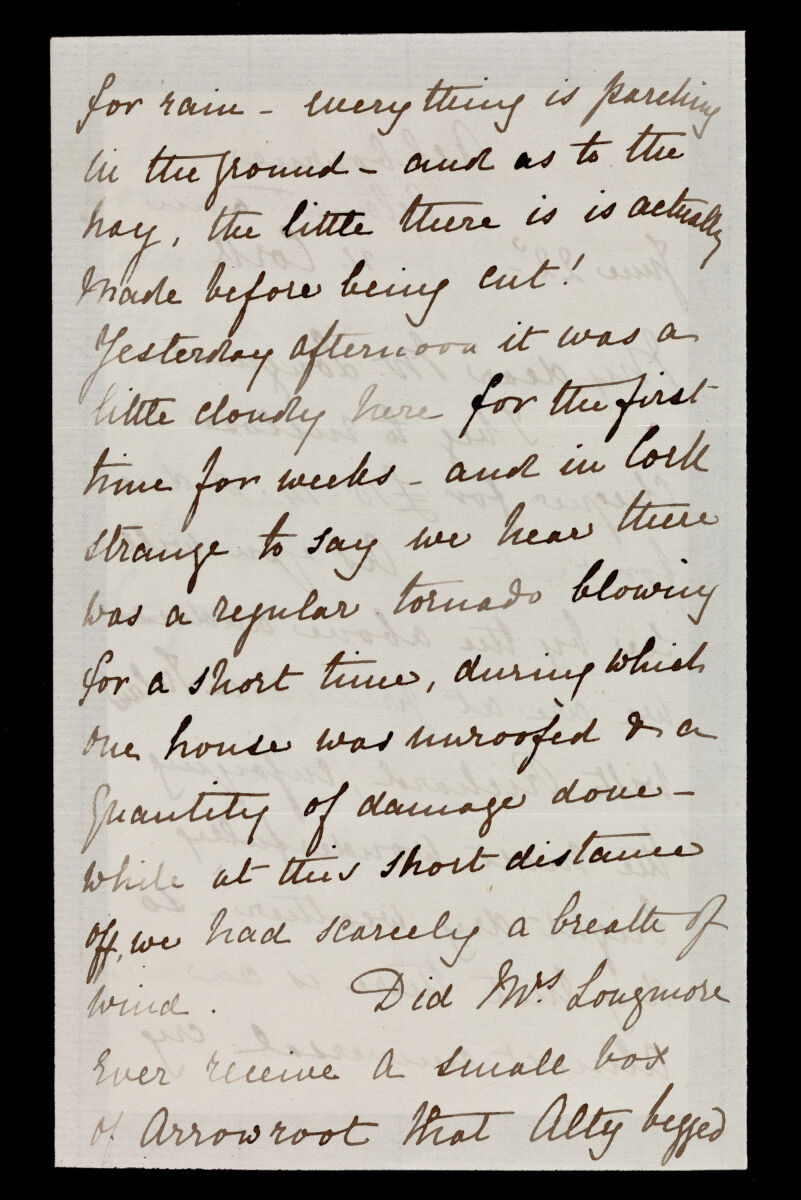 for rain - everything is parching
in the ground - and as to the
hay, the little there is is actually
made before being cut!
Yesterday afternoon it was a
little cloudy here for the first
time for weeks - and in Cork
strange to say we hear there
was a regular tornado blowing
for a short time, during which
one house was unroofed & a
quantity of damage done -
while at this short distance
off, we had scarcely a breath of
wind. Did Mrs Longmore
Ever receive a small box
of Arrowroot that Alty begged